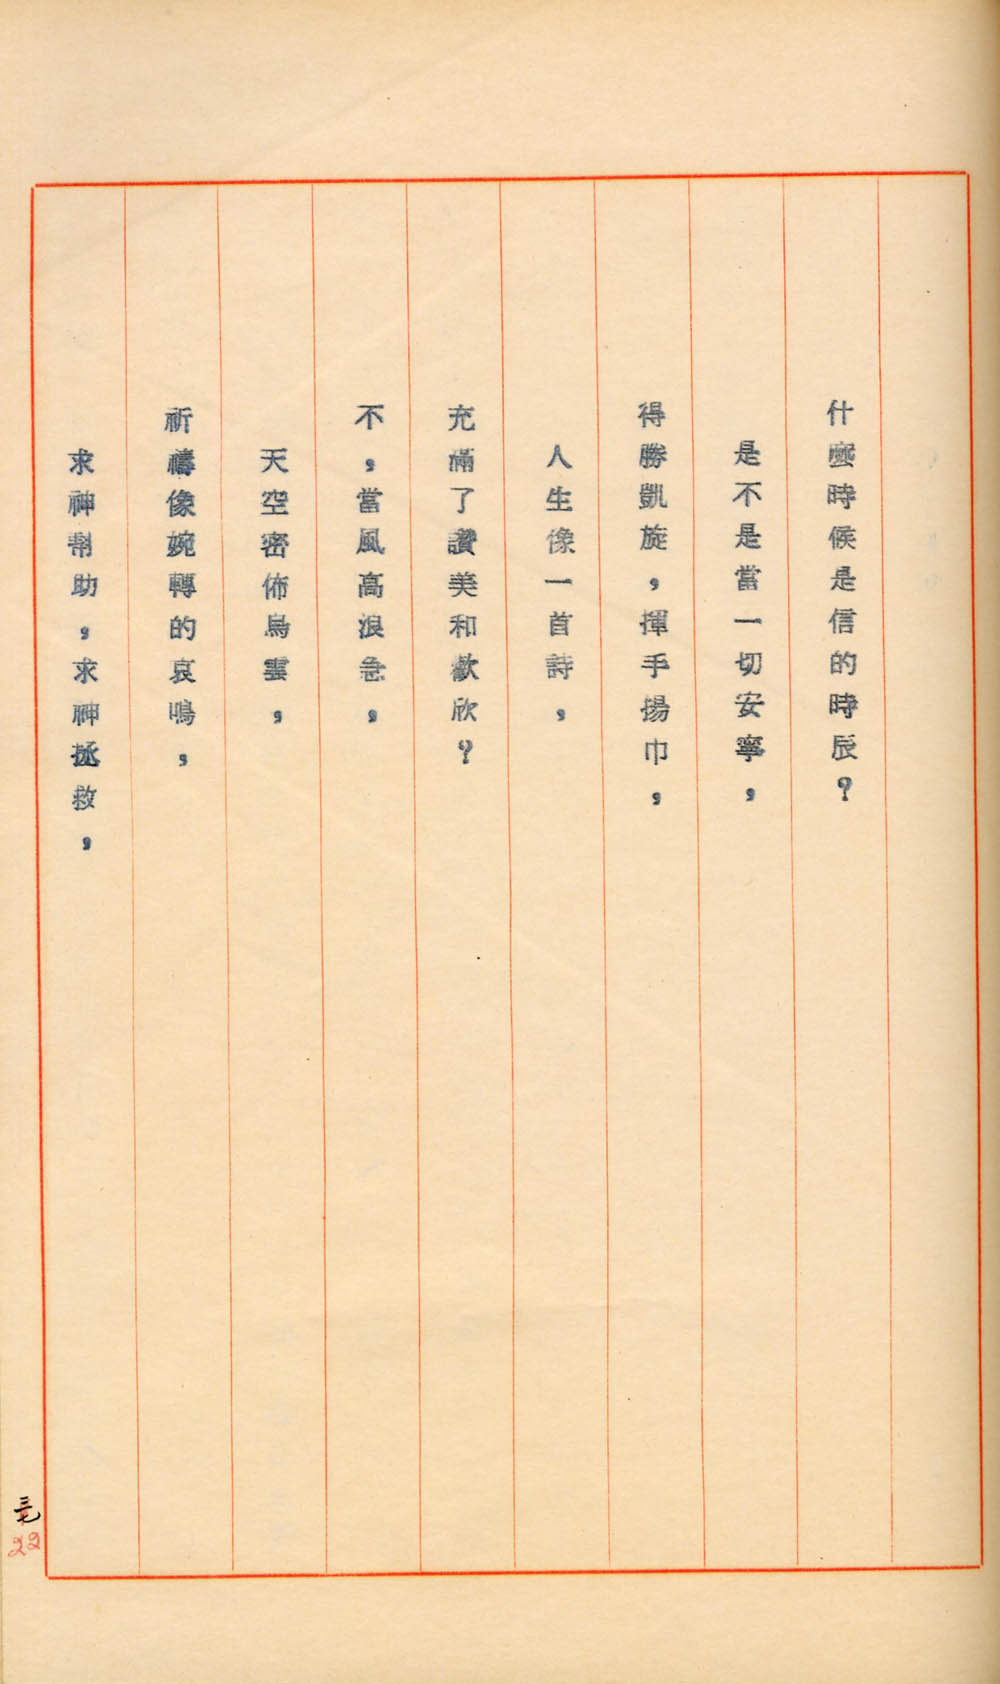 什麼時候是信的時辰?
是不是當一切安寧,
得勝凱旋,揮手揚巾,
人生像一首詩,
充滿了讚美和歡欣?
不,當風高浪急,
天空密佈烏雲,
祈禱像婉轉的哀鳴,
求神幫助,求神拯救,
22